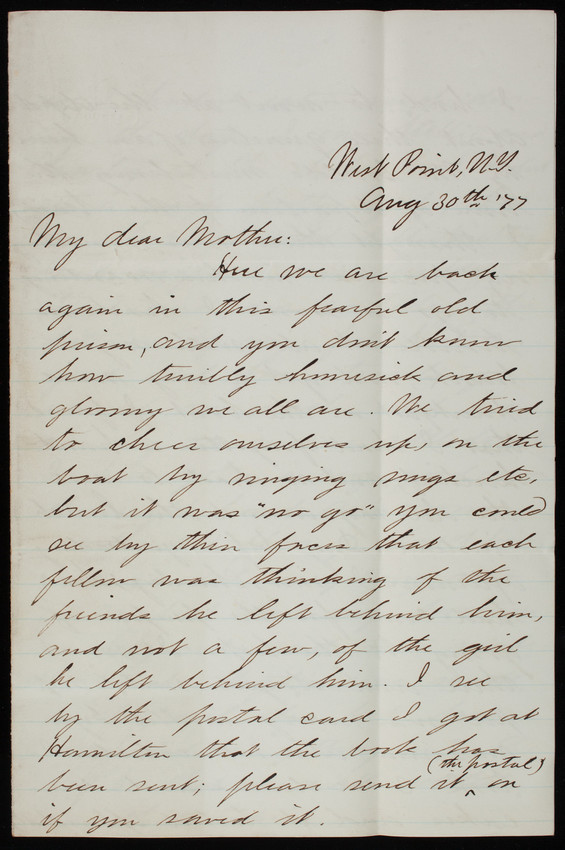 West Point, N.Y.
Aug 30th '77
My dear Mother:
Here we are back
again in this fearful old
prison, and you don't know
how terribly homesick and
gloomy we all are. We tried
to cheer ourselves up, on the
boat by singing songs etc,
but it was "no go" you could
see by their faces that each
fellow was thinking of the
friends he left behind him,
and not a few, of the girl
he left behind him. I see
by the postal card I got at
Hamilton that the book has
(the postal)
been sent; please send it ^ on
if you saved it.